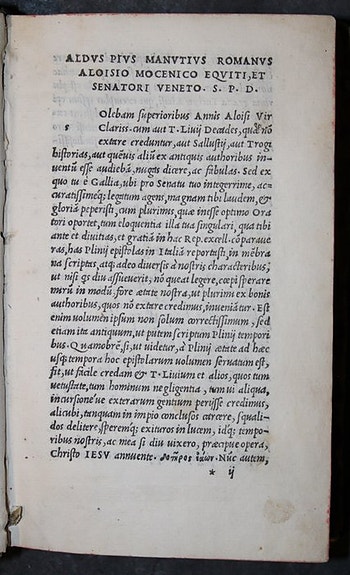 ALDVS PIVS MANVTIVS ROMANVS
ALOISIO MOCENICO EQVITI, ET
SENATORI VENETO. S. P. D.
Olebam superioribus Annis Aloisi Vir
s Clariss. cum aut T. Liuij Decades, quæ nõ
extare creduntur, aut Sallustij, aut Trogi
historias, aut quẽuis aliũ ex antiquis authoribus in-
uentũ esse audiebã, nugas dicere, ac fabulas. Sed ex
quo tu è Gallia, ubi pro Senatu tuo integerrime, ac-
curatissimeq; legatum agens, magnam tibi laudem, &
gloriã peperisti, cum plurimis, quæ inesse optimo Ora
tori oportet, tum eloquentia illa tua singulari, qua tibi
ante et diuitias, et gratiã in hac Rep. excell. cõparaue
ras, has Plinij epistolas in Italiã reportasti, in mẽbra
na scriptas, atq; adeo diuersis à nostris characteribus,
ut nisi quis diu assueuerit, nõ queat legere, cœpi sperare
mirũ in modũ, fore ætate nostra, ut plurimi ex bonis
authoribus, quos nõ extare credimus, inueniãtur. Est
enim uolumen ipsum non solum correctissimum, sed
etiam ita antiquum, ut putem scriptum Plinij tempori
bus. Quamobrẽ, si, ut uidetur, à Plinij ætate ad hæc
usq; tempora hoc epistolarum uolumen seruatum est,
fit, ut facile credam & T. Liuium et alios, quos tum
uetustate, tum hominum negligentia, tum ui aliqua,
incursione'ue exterarum gentium perijsse credimus,
alicubi, tanquam in impio conclusos carcere, squali-
dos delitere, speremq; exituros in lucem, idq; tempo-
ribus nostris, ac mea si diu uixero, præcipue opera,
Christo IESV annuente. Nũc autem,
* ij